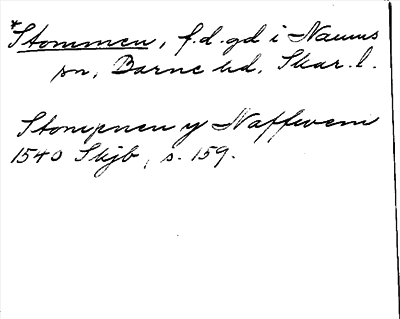 *Stommen, f.d. gd i Naums
sn, Barne hd, Skar. l.
Stompnen y Naffwem
1540 Skjb, s. 159.